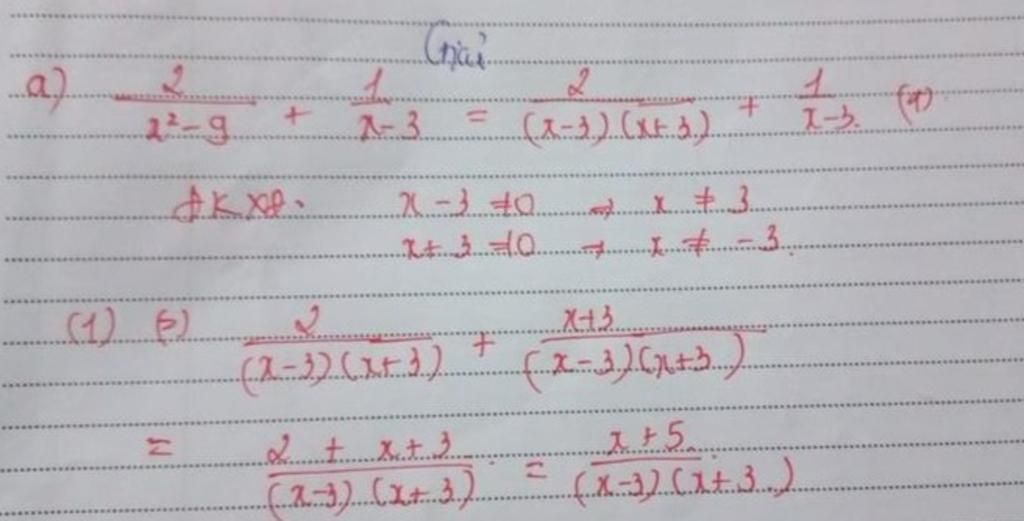 Giải
a) 2/(x²-9) + 1/(x-3) = 2/((x-3)(x+3)) + 1/(x-3) (1)
ĐKXĐ. x-3 ≠0 → x ≠ 3
x+3 ≠0 → x ≠ -3.
(1) (=) 2/((x-3)(x+3)) + (x+3)/((x-3)(x+3))
= (2 + x+3)/((x-3)(x+3)) = (x+5)/((x-3)(x+3))